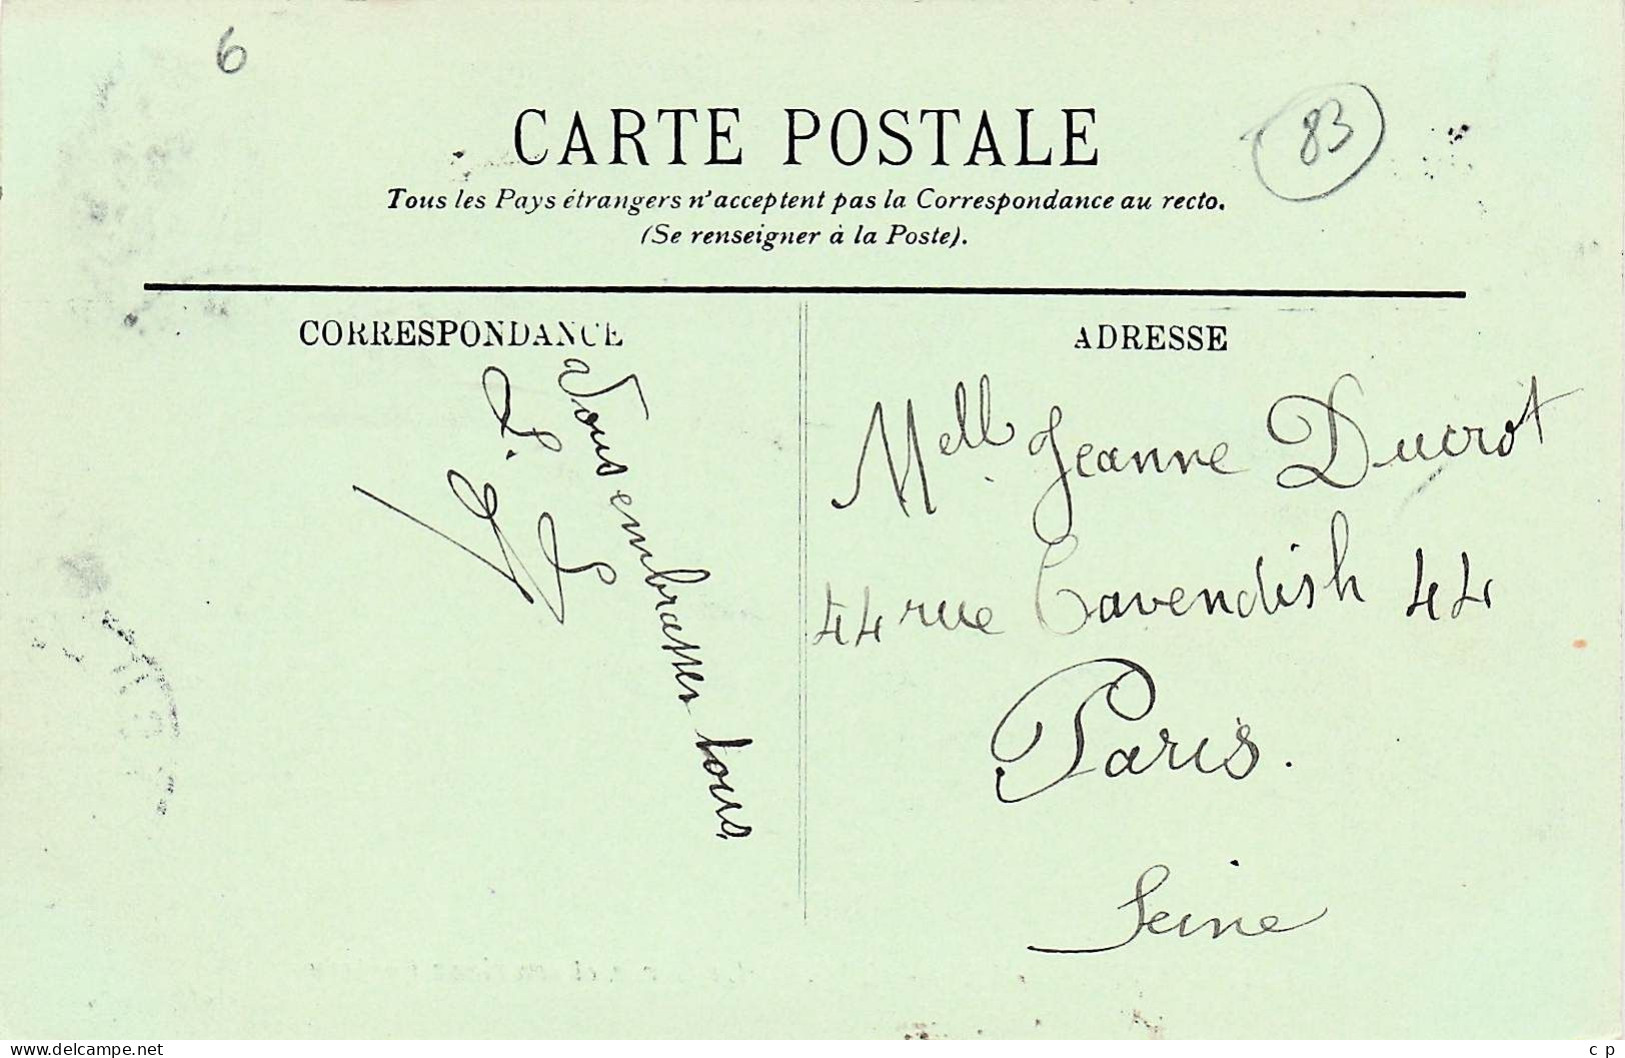 6
CARTE POSTALE
83
Tous les Pays étrangers n'acceptent pas la Correspondance au recto.
(Se renseigner à la Poste).
CORRESPONDANCE
Vous embrasser tous
ADRESSE
Mell. Jeanne Ducrot
44 rue Cavendish 44
Paris.
Seine
www.delcampe.net
c p